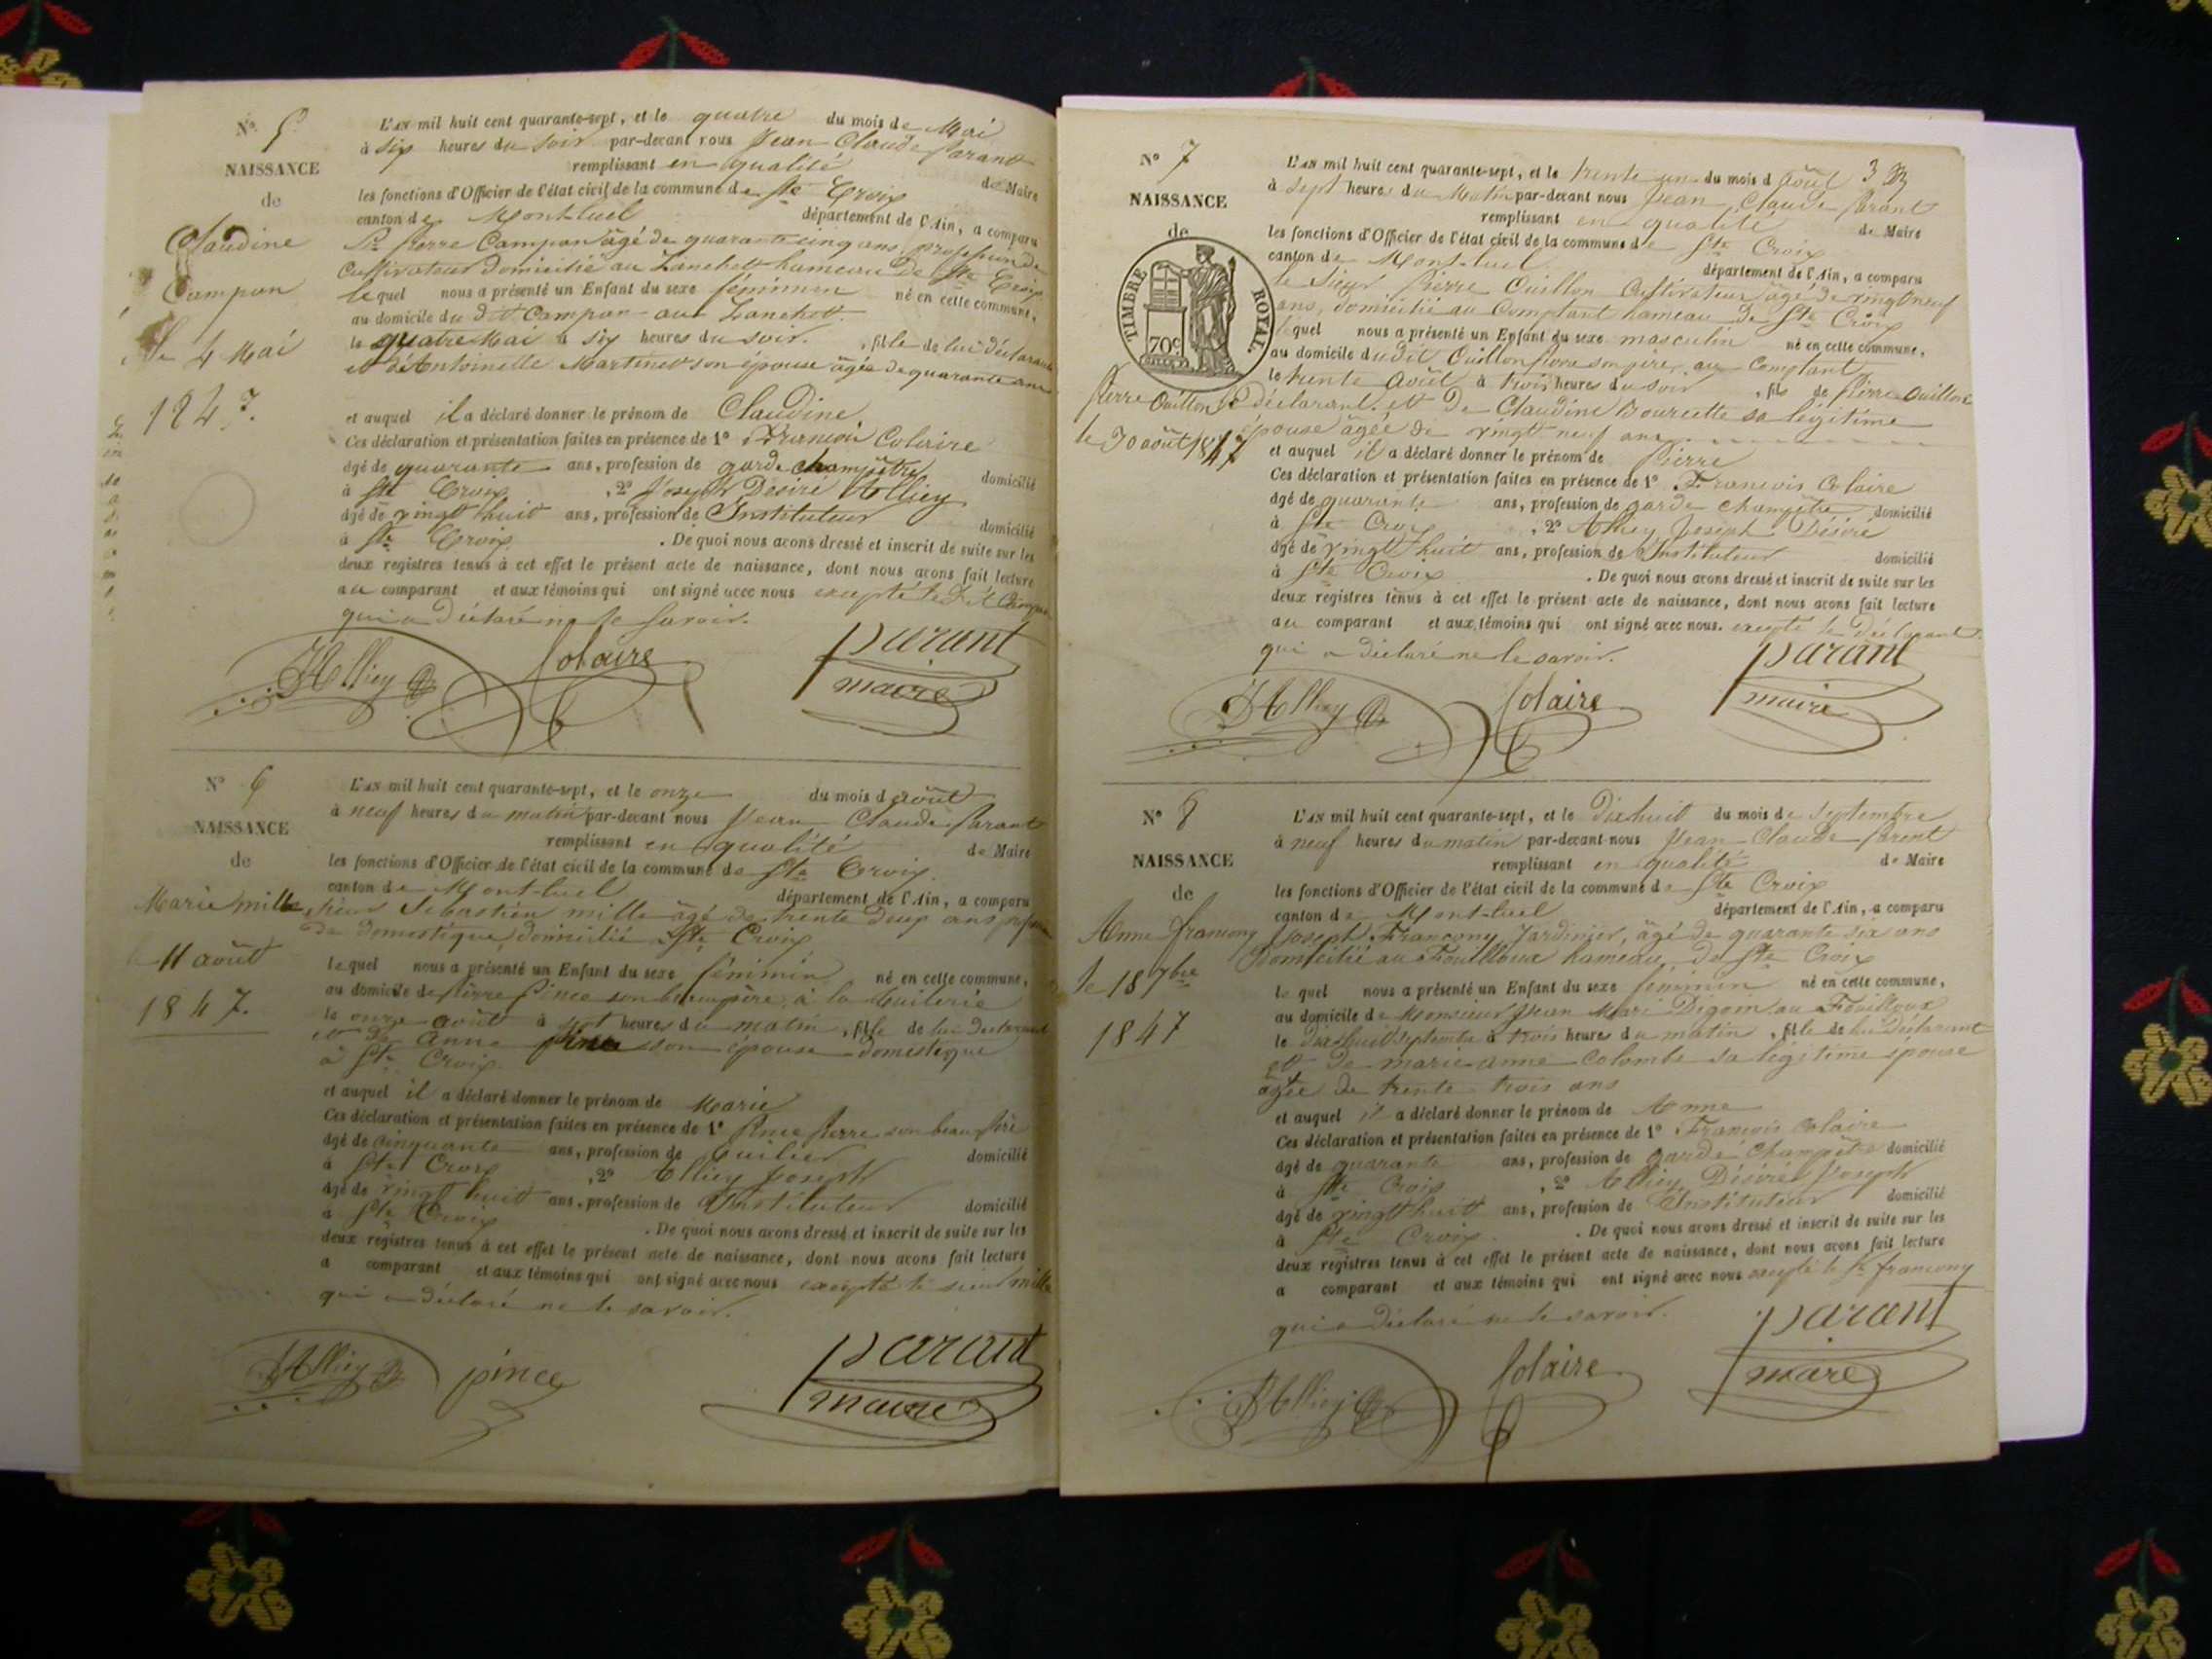 N° 5
NAISSANCE
de
Claudine
Campan
le 4 Mai
1847.
L'AN mil huit cent quarante-sept, et le quatre du mois de Mai
à six heures du soir par-devant nous Jean Claude Parant
remplissant en qualité de Maire
les fonctions d'Officier de l'état civil de la commune de Ste Croix
canton de Montluel département de l'Ain, a comparu
Sr. Pierre Campan âgé de quarante cinq ans, profession de
Cultivateur domicilié au Hameau de Ste Croix
lequel nous a présenté un Enfant du sexe féminin né en cette commune,
au domicile du dit Campan au
le quatre Mai à six heures du soir. , fille de lui déclarant
et d'Antoinette Martinet son épouse âgée de quarante ans
et auquel il a déclaré donner le prénom de Claudine
Ces déclaration et présentation faites en présence de 1° François Colaire
âgé de quarante ans, profession de garde champêtre domicilié
à Ste Croix , 2° Joseph Désiré Alliey
âgé de vingt huit ans, profession de Instituteur domicilié
à Ste Croix . De quoi nous avons dressé et inscrit de suite sur les
deux registres tenus à cet effet le présent acte de naissance, dont nous avons fait lecture
au comparant et aux témoins qui ont signé avec nous excepté le dit Campan
qui a déclaré ne le savoir.
JAlliey Colaire parant
maire
N° 6
NAISSANCE
de
Marie mille
11 août
1847.
L'AN mil huit cent quarante-sept, et le onze du mois d août
à neuf heures du matin par-devant nous Jean Claude Parant
remplissant en qualité de Maire
les fonctions d'Officier de l'état civil de la commune de Ste Croix.
canton de Montluel département de l'Ain, a comparu
Sébastien mille âgé de trente deux ans
de domestique, domicilié Ste Croix
lequel nous a présenté un Enfant du sexe féminin né en cette commune,
au domicile de Pierre Pince son beau père, à la tuilerie
le onze août à heures du matin , fille de lui déclarant
et de Anne Pince son épouse domestique
à Ste Croix
et auquel il a déclaré donner le prénom de Marie
Ces déclaration et présentation faites en présence de 1° Pince Pierre son beau père
âgé de cinquante ans, profession de tuilier domicilié
à Ste Croix , 2° Alliey Joseph
âgé de vingt huit ans, profession de Instituteur domicilié
à Ste Croix . De quoi nous avons dressé et inscrit de suite sur les
deux registres tenus à cet effet le présent acte de naissance, dont nous avons fait lecture
a comparant et aux témoins qui ont signé avec nous excepté le sieur mille
qui a déclaré ne le savoir.
JAlliey pince parant
maire
3
N° 7
NAISSANCE
de
TIMBRE ROYAL.
70c
Pierre Ouillon
le 30 août 1847
L'AN mil huit cent quarante-sept, et le trente un du mois d Août
à sept heures du Matin par-devant nous Jean Claude Parant
remplissant en qualité de Maire
les fonctions d'Officier de l'état civil de la commune de Ste Croix
canton de Mont-luel département de l'Ain, a comparu
le Sieur Pierre Ouillon Cultivateur âgé de vingt neuf
ans, domicilié au Comptant hameau de Ste Croix
lequel nous a présenté un Enfant du sexe masculin né en cette commune,
au domicile dudit Ouillon Pierre son père au Comptant
le trente Août à trois heures du soir , fils de Pierre Ouillon
déclarant et de Claudine Bourcette sa légitime
épouse âgée de vingt neuf ans
et auquel il a déclaré donner le prénom de Pierre
Ces déclaration et présentation faites en présence de 1° François Colaire
âgé de quarante ans, profession de garde champêtre domicilié
à Ste Croix , 2° Alliey Joseph Désiré
âgé de vingt huit ans, profession de Instituteur domicilié
à Ste Croix . De quoi nous avons dressé et inscrit de suite sur les
deux registres tenus à cet effet le présent acte de naissance, dont nous avons fait lecture
au comparant et aux témoins qui ont signé avec nous. excepté le déclarant
qui a déclaré ne le savoir.
JAlliey Colaire parant
maire
N° 8
NAISSANCE
de
Anne francony
le 18 7bre
1847
L'AN mil huit cent quarante-sept, et le Dixhuit du mois de Septembre
à neuf heures du matin par-devant nous Jean Claude Parent
remplissant en qualité de Maire
les fonctions d'Officier de l'état civil de la commune de Ste Croix
canton de Mont-luel département de l'Ain, a comparu
Joseph Francony Jardinier, âgé de quarante six ans
Domicilié au Fouilloux hameau de Ste Croix
lequel nous a présenté un Enfant du sexe féminin né en cette commune,
au domicile de Monsieur Jean Mari Digoin au Fouilloux
le Dixhuit septembre à trois heures du matin , fille de lui déclarant
et de marie anne Colombe sa légitime épouse
agée de trente trois ans
et auquel il a déclaré donner le prénom de Anne
Ces déclaration et présentation faites en présence de 1° François Colaire
âgé de quarante ans, profession de garde Champêtre domicilié
à Ste Croix , 2° Alliey Désiré Joseph
âgé de vingt huit ans, profession de Instituteur domicilié
à Ste Croix . De quoi nous avons dressé et inscrit de suite sur les
deux registres tenus à cet effet le présent acte de naissance, dont nous avons fait lecture
a comparant et aux témoins qui ont signé avec nous excepté le Sr francony
qui a déclaré ne le savoir.
JAlliey Colaire parant
maire